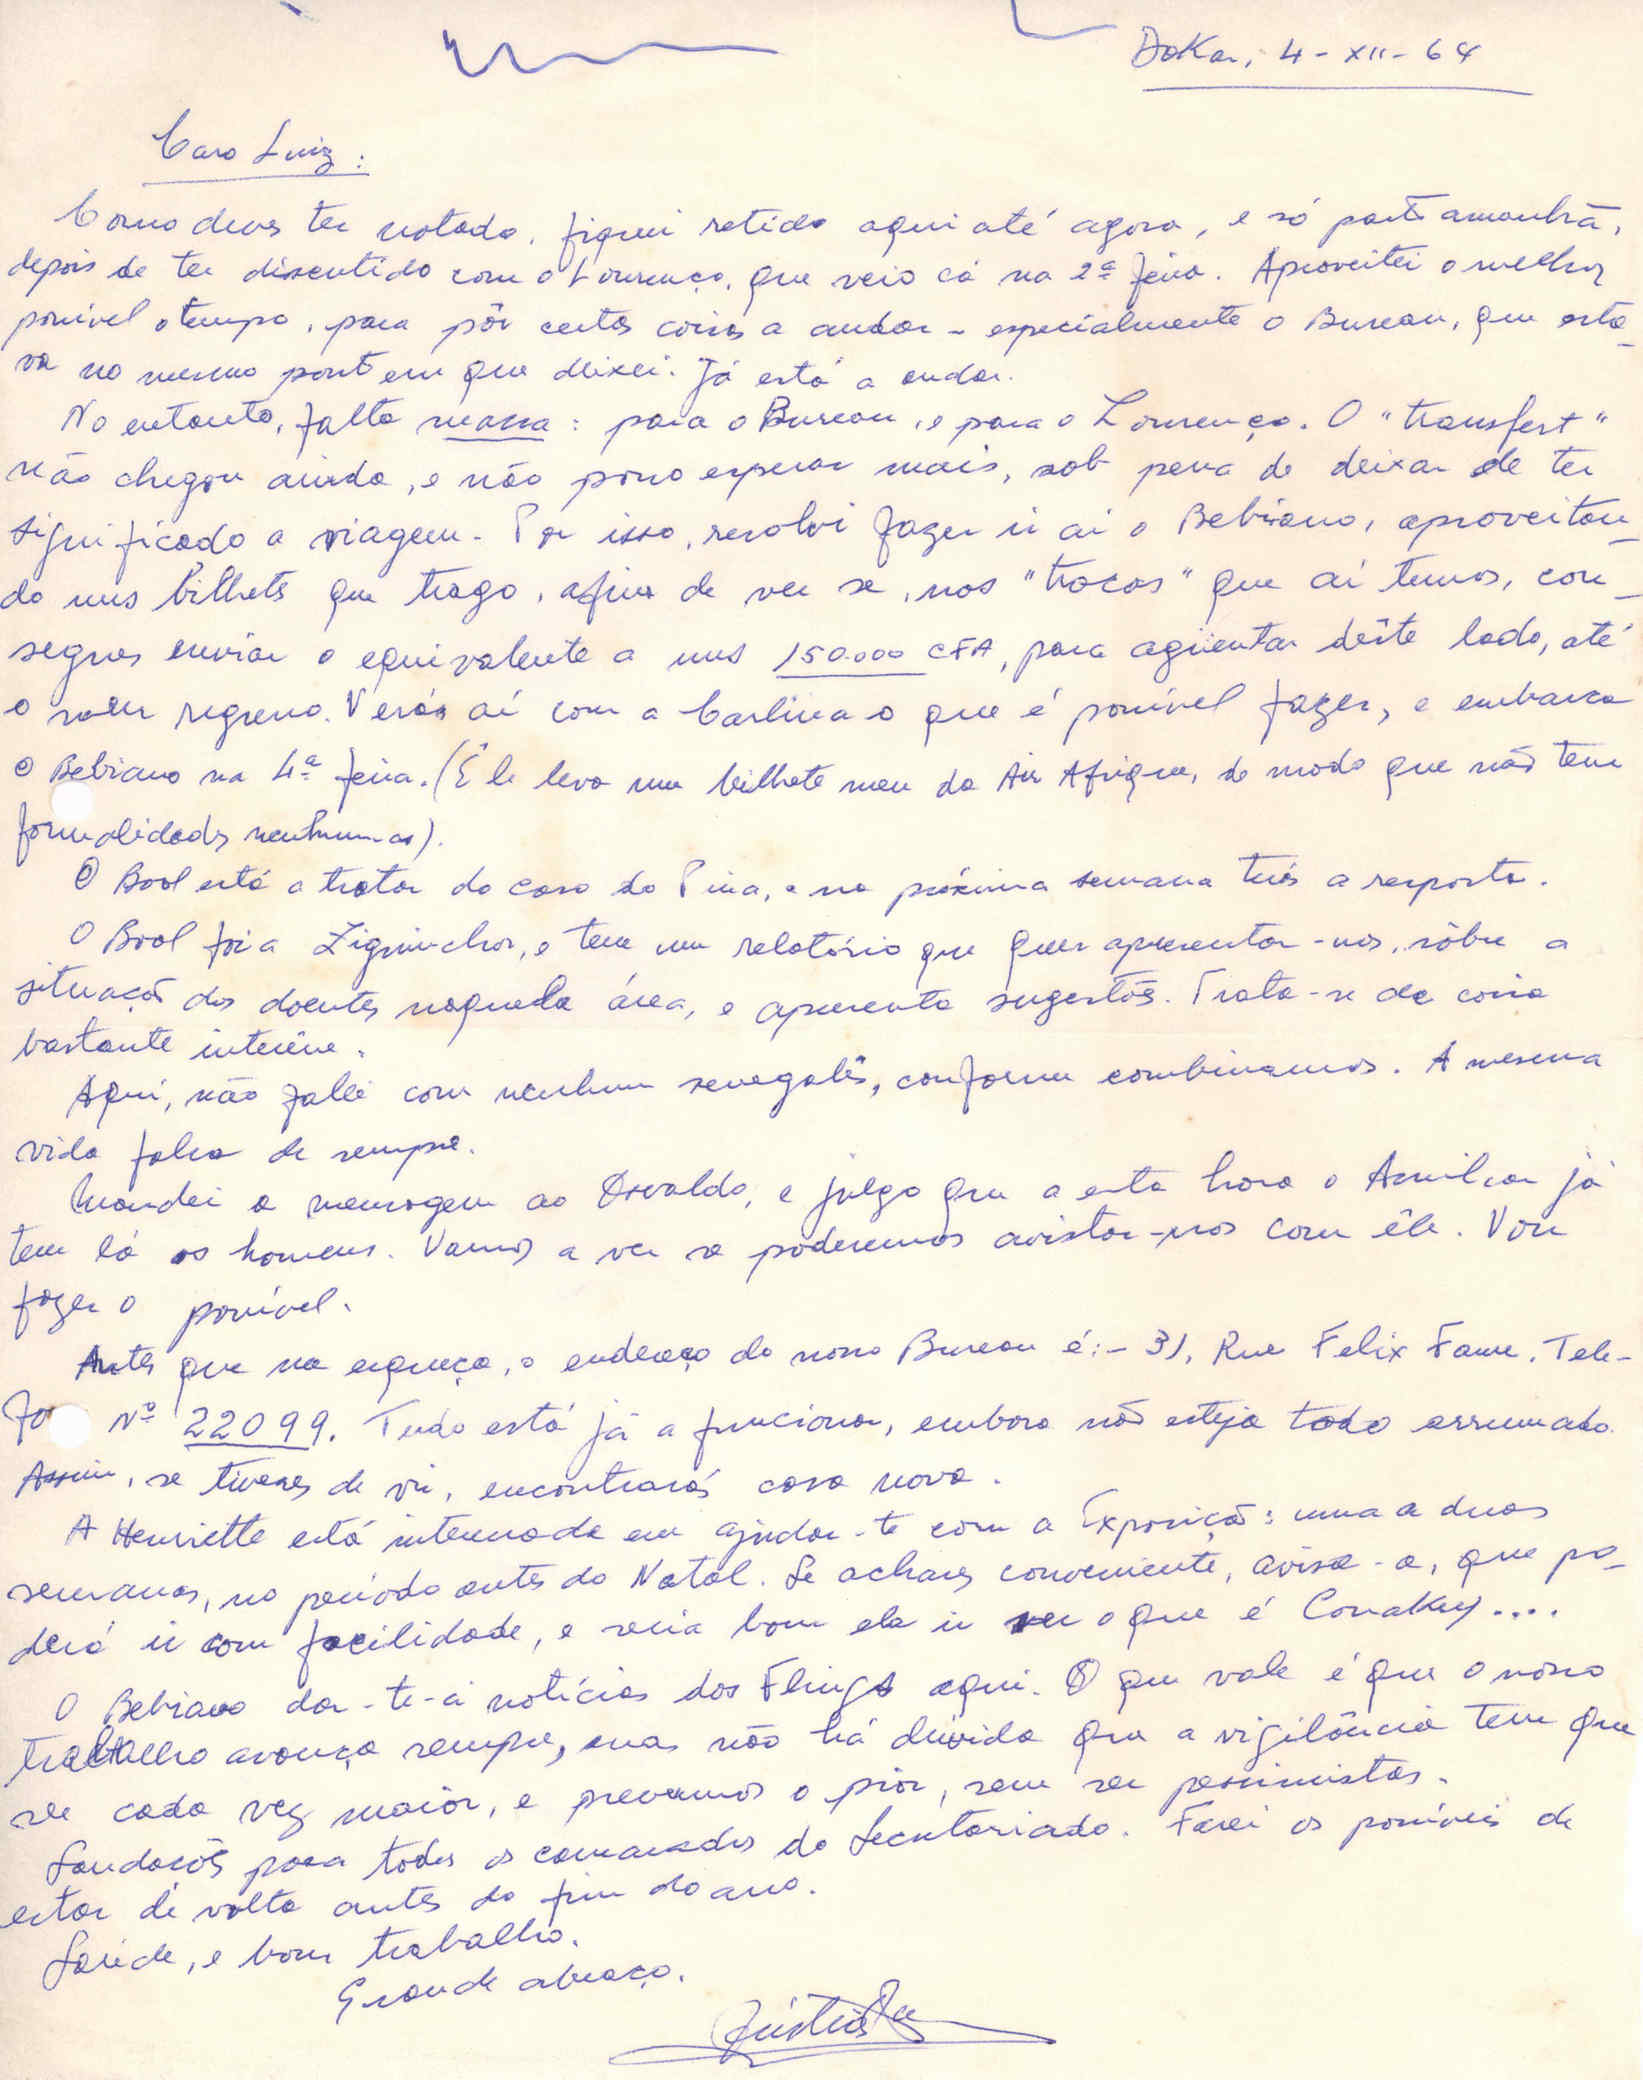 Dakar, 4-XII-64
Caro Luiz:
Como deves ter notado, fiquei retido aqui até agora, e só parto amanhã,
depois de ter discutido com o Lourenço, que veio cá na 2ª feira. Aproveitei o melhor
possível o tempo, para pôr certas coisas a andar - especialmente o Bureau, que esta-
va no mesmo ponto em que deixei. Já está a andar.
No entanto, falta massa: para o Bureau, e para o Lourenço. O "transfert"
não chegou ainda, e não posso esperar mais, sob pena de deixar de ter
significado a viagem. Por isso, resolvi fazer ir aí o Bebiano, aproveitan-
do uns bilhetes que trago, afim de ver se, nos "trocos" que aí temos, con-
segues enviar o equivalente a uns 150.000 CFA, para agüentar dêste lado, até
o meu regresso. Verás aí com a Carlina o que é possível fazer, e embarca
o Bebiano na 4ª feira. (Êle leva um bilhete meu da Air Afrique, de modo que não tem
formalidades nenhumas).
O Boal está a tratar do caso do Pina, e na próxima semana terás a resposta.
O Boal foi a Ziguinchor, e tem um relatório que quer apresentar-nos, sôbre a
situação dos doentes naquela área, e apresenta sugestões. Trata-se de coisa
bastante interêsse.
Aqui, não falei com nenhum senegalês, conforme combinamos. A mesma
vida falsa de sempre.
Mandei a mensagem ao Osvaldo, e julgo que a esta hora o Amilcar já
tem lá os homens. Vamos a ver se poderemos avistar-nos com êle. Vou
fazer o possível.
Antes que me esqueça, o endereço do nosso Bureau é:- 31, Rue Felix Faure. Tele-
fo Nº 22099. Tudo está já a funcionar, embora não esteja todo arrumado.
Assim, se tiveres de vir, encontrarás casa nova.
A Henriette está interessada em ajudar-te com a Exposição: uma a duas
semanas, no período antes do Natal. Se achares conveniente, avisa-a, que po-
derá ir com facilidade, e seria bom ela ir ver o que é Conakry....
O Bebiano dar-te-á notícias dos Flings aqui. O que vale é que o nosso
trabalho avança sempre, mas não há dúvida que a vigilância tem que
ser cada vez maior, e prevermos o pior, sem ser pessimistas.
Saudações para todos os camaradas do Secretariado. Farei os possíveis de
estar de volta antes do fim do ano.
Saúde, e bom trabalho.
Grande abraço.